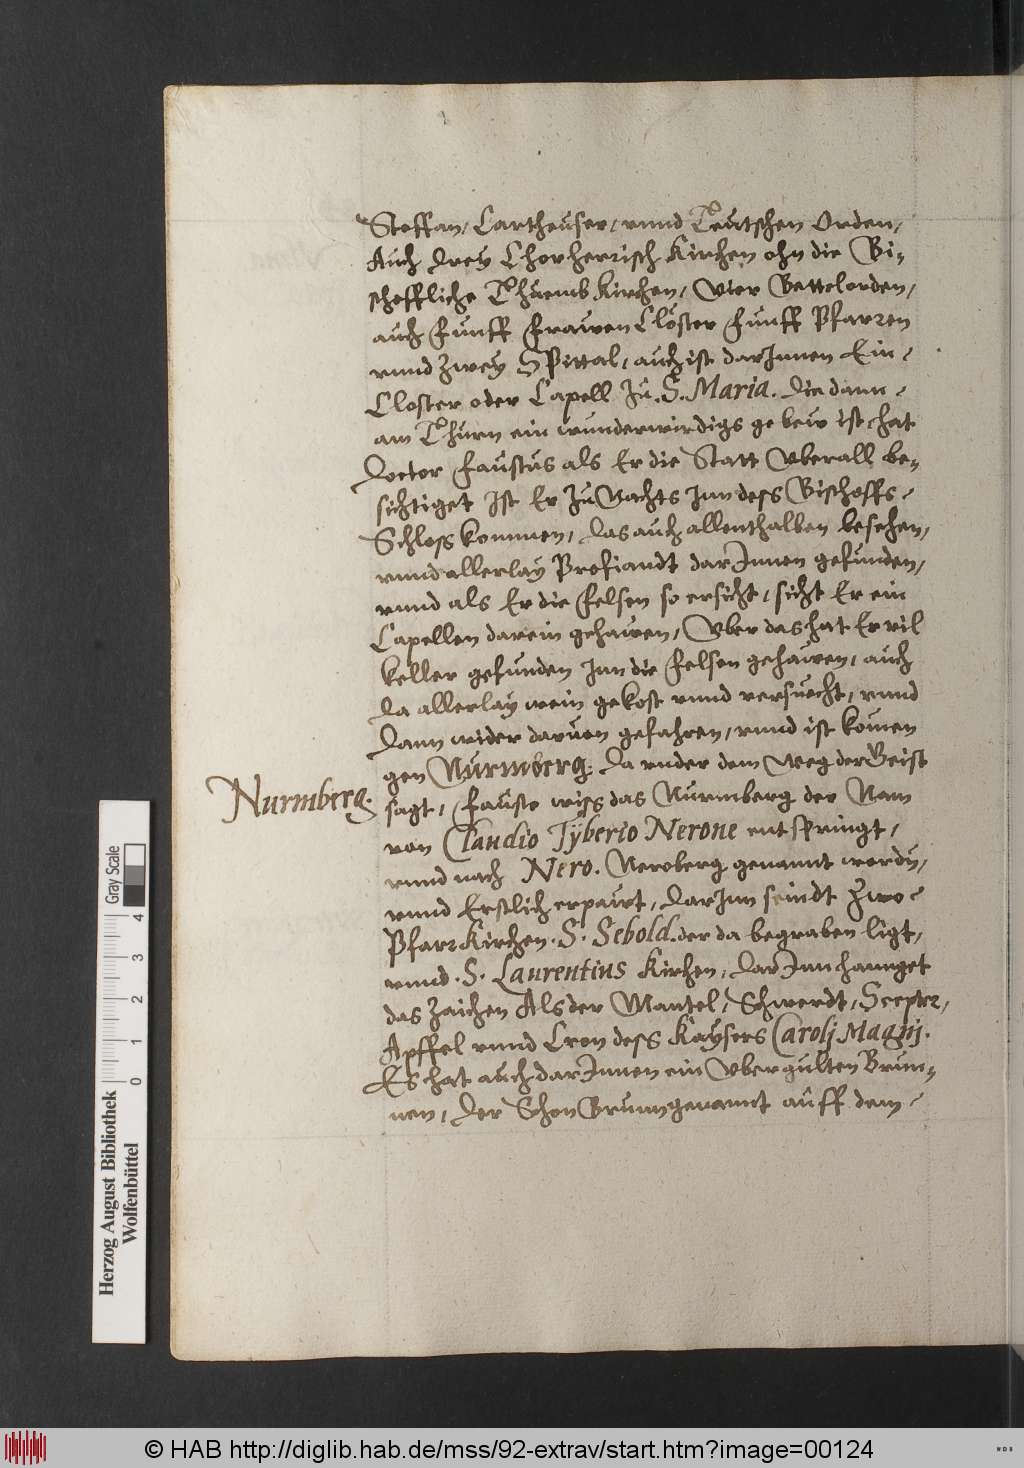 Steffan, Cartheuser, vnnd Teutschen Orden,
Auch drey Chorherrisch Kirchen ohn die Bi-
scheffliche Thuemb Kirchen, Vier Bettelorden,
auch Funff Frawen Closter Funff Pfarren
vnnd zwey Spittal, auch ist darInnen Ein
Closter oder Capell zu. S. Maria. die dann
am Thurn ein wunderwirdigs gebew ist, hat
doctor Faustus als Er die Statt Vberall be-
sichtiget Ist Er zu Nachts Inn dess Bischoffs
Schloss kommen, das auch allenthalben besehen,
vnnd allerlay Profiandt darInnen gefunden,
vnnd als Er die Felsen so ersicht, sicht Er ein
Capellen darein gehawen, Vber das hat Er vil
keller gefunden Inn die Felsen gehawen, auch
da allerlay wein gekost vnnd versuecht, vnnd
dann wider daruon gefahren, vnnd ist komen
gen Nurmberg. Da vnder dem weg der Geist
Nurmberg.
sagt, Fauste wiss das Nurmberg der Nam
von Claudio Tÿberio Nerone entspringt,
vnnd nach Nero. Neroberg genannt worden,
vnnd Erstlich erpawt, darInn seindt zwo
Pfarr Kirchen. S. Sebold. der da begraben ligt,
vnnd. S. Laurentius Kirchen, darInn hannget
das zaichen Als der Mantel, Schwerdt, Scepter,
Apffel vnnd Cron dess Kaysers Carolj Magnj.
Es hat auch darInnen ein Vbergulten Brun-
nen, der Schon Brunn genannt auff dem
Herzog August Bibliothek
Wolfenbüttel
0 1 2 3 4
Gray Scale
© HAB http://diglib.hab.de/mss/92-extrav/start.htm?image=00124
WDB